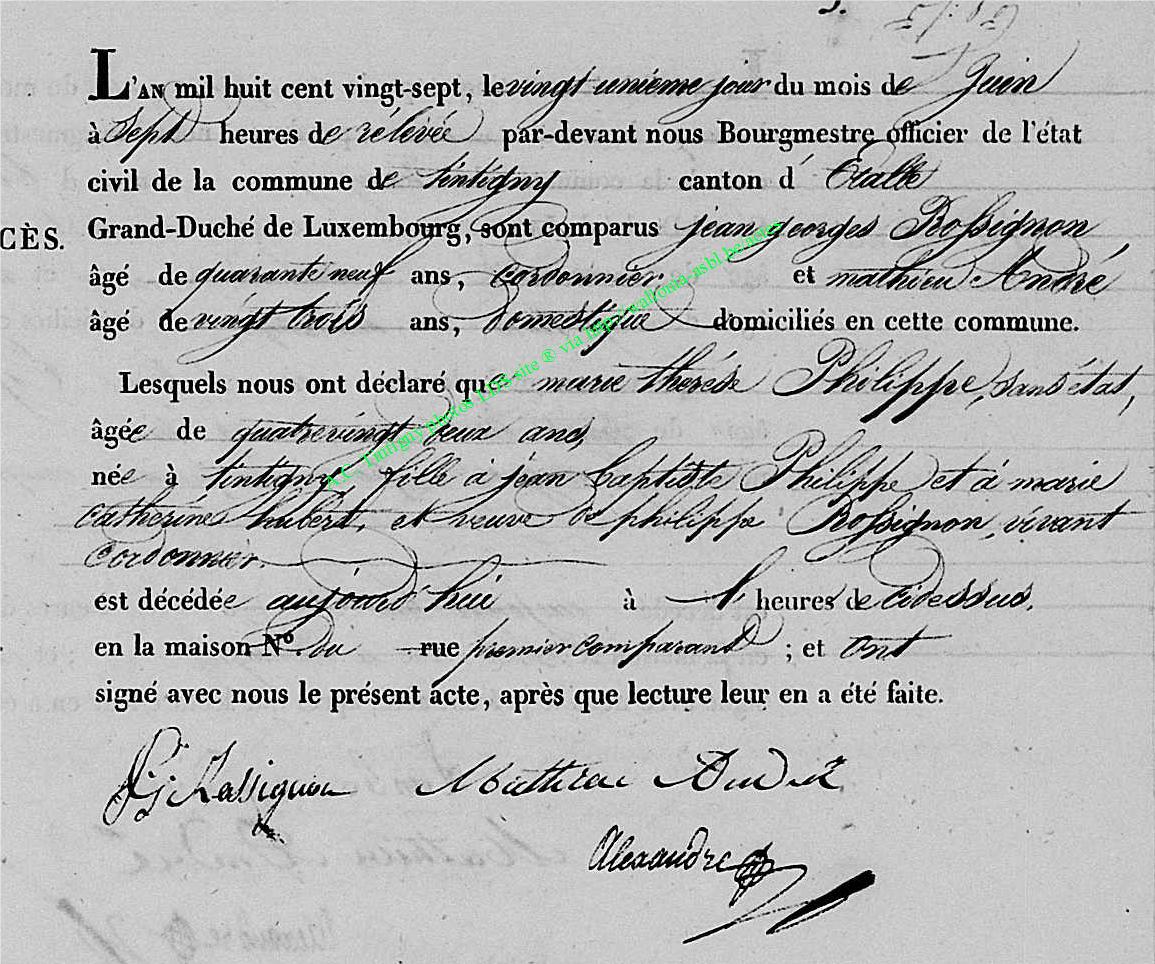 L'AN mil huit cent vingt-sept, le vingt unième jour du mois de Juin
à Sept heures de rélévée par-devant nous Bourgmestre officier de l'état
civil de la commune de tintigny canton d' Etalle
CÈS.
Grand-Duché de Luxembourg, sont comparus jean georges Rossignon,
âgé de quarante neuf ans, Cordonnier, et mathieu André
âgé de vingt trois ans, Domestique domiciliés en cette commune.
Lesquels nous ont déclaré que marie therése Philippe, sans état,
âgée de quatrevingt deux ans,
née à tintigny, fille à jean baptiste Philippe et à marie
Catherine hubert, et veuve de philippe Rossignon, vivant
Cordonnier.
est décédée aujourd'hui à l' heures de cidessus,
en la maison N° du rue premier comparant ; et ont
signé avec nous le présent acte, après que lecture leur en a été faite.
J G Rossignon Mathieu André
Alexandre
A.C. Tintigny photos LDS site ® via http://wallonia-asbl.be/actes